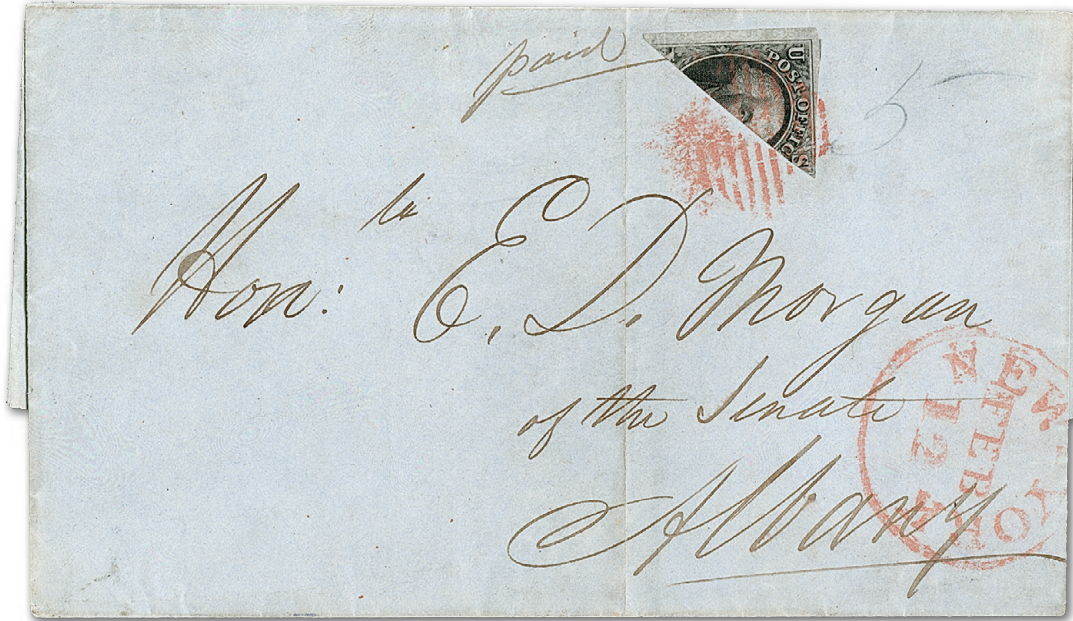 paid
U
POST OFFIC
5
Hon: E. D. Morgan
of the Senate
Albany
NEW YORK
FEB
12